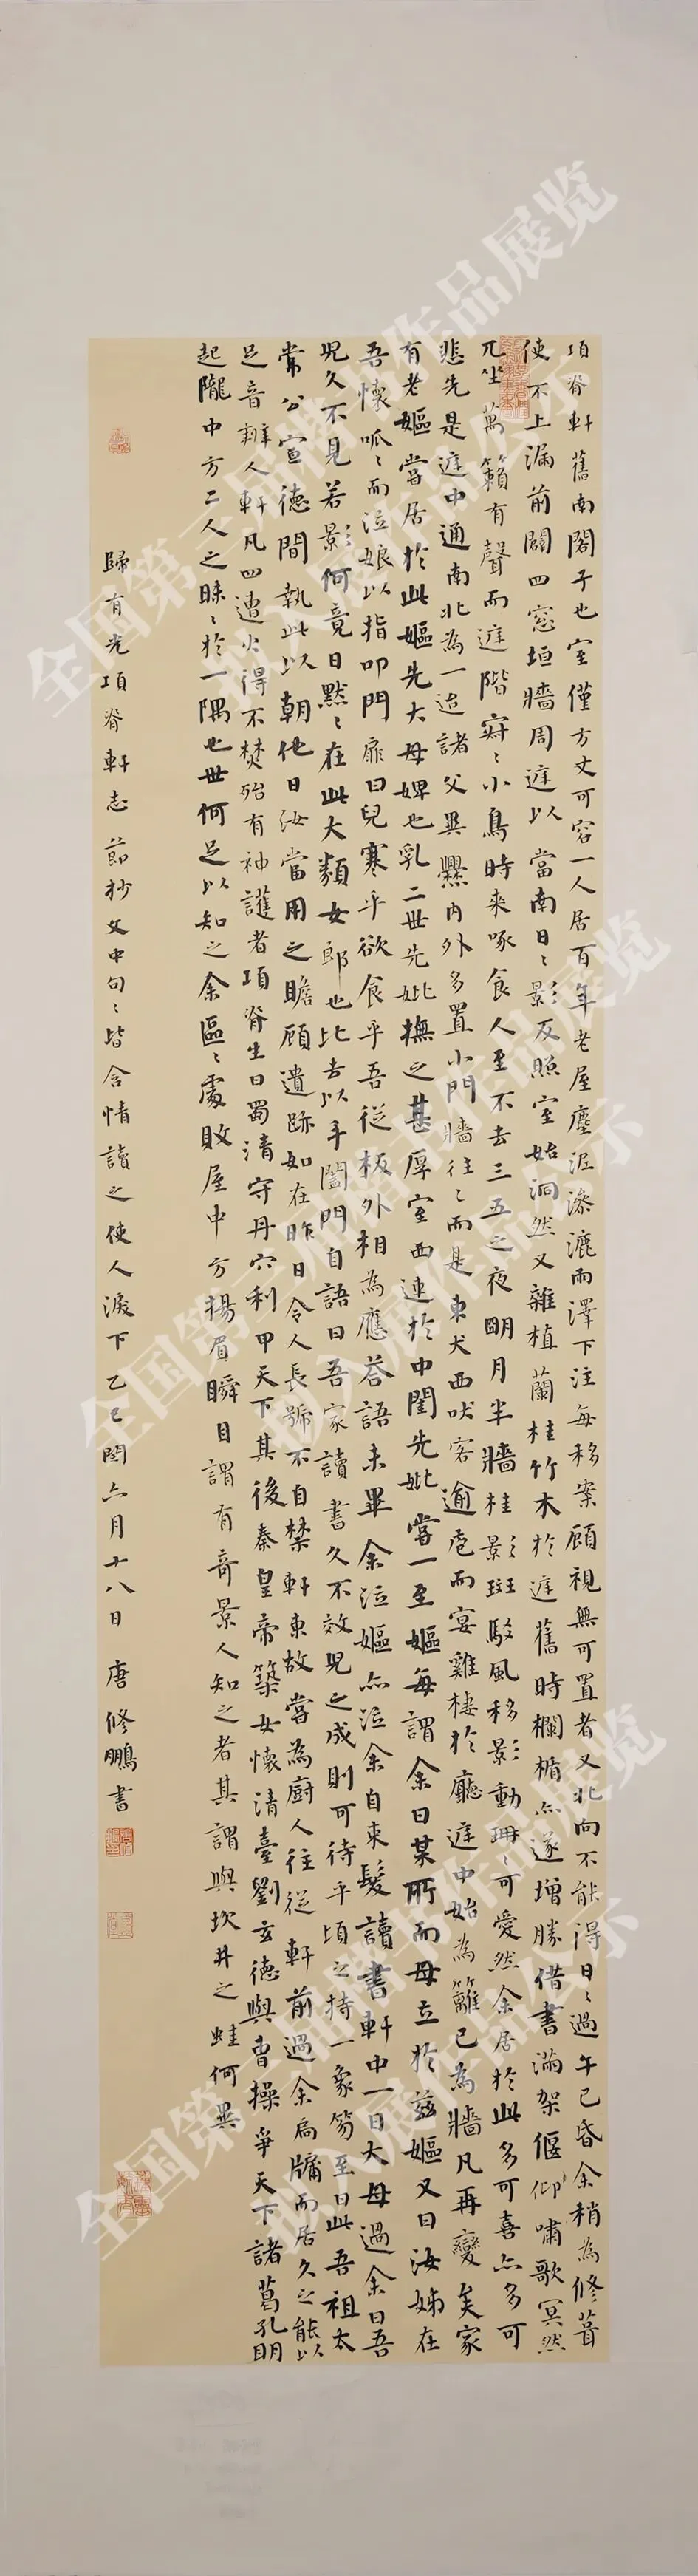 項脊軒舊南閣子也室僅方丈可容一人居百年老屋塵泥滲漉雨澤下注每移案顧視無可置者又北向不能得日〻過午已昏余稍為修葺
使不上漏前闢四窓垣牆周庭以當南日〻影反照室始洞然又雜植蘭桂竹木於庭舊時欄楯亦遂增勝借書滿架偃仰嘯歌冥然
兀坐萬籟有聲而庭階寂〻小鳥時來啄食人至不去三五之夜明月半牆桂影斑駁風移影動珊〻可愛然余居於此多可喜亦多可
悲先是庭中通南北為一迨諸父異爨內外多置小門牆往〻而是東犬西吠客逾庖而宴雞棲於廳庭中始為籬已為牆凡再變矣家
有老嫗嘗居於此嫗先大母婢也乳二世先妣撫之甚厚室西連於中閨先妣嘗一至嫗每謂余曰某所而母立於茲嫗又曰汝姊在
吾懷呱〻而泣娘以指叩門扉曰兒寒乎欲食乎吾從板外相為應荅語未畢余泣嫗亦泣余自束髮讀書軒中一日大母過余曰吾
兒久不見若影何竟日黙〻在此大類女郎也比去以手闔門自語曰吾家讀書久不效兒之成則可待乎頃之持一象笏至曰此吾祖太
常公宣德間執此以朝他日汝當用之瞻顧遺跡如在昨日令人長號不自禁軒東故嘗為廚人往從軒前過余扃牖而居久之能以
足音辨人軒凡四遭火得不焚殆有神護者項脊生曰蜀清守丹穴利甲天下其後秦皇帝築女懷清臺劉玄德與曹操爭天下諸葛孔明
起隴中方二人之昧〻於一隅也世何足以知之余區〻處敗屋中方揚眉瞬目謂有奇景人知之者其謂與坎井之蛙何異
歸有光項脊軒志節抄文中句〻皆含情讀之使人淚下乙巳閏六月十八日唐修鵬書
全国第三届楷书作品展览
拟入展作品公示
全国第三届楷书作品展览
拟入展作品公示
全国第三届楷书作品展览
拟入展作品公示